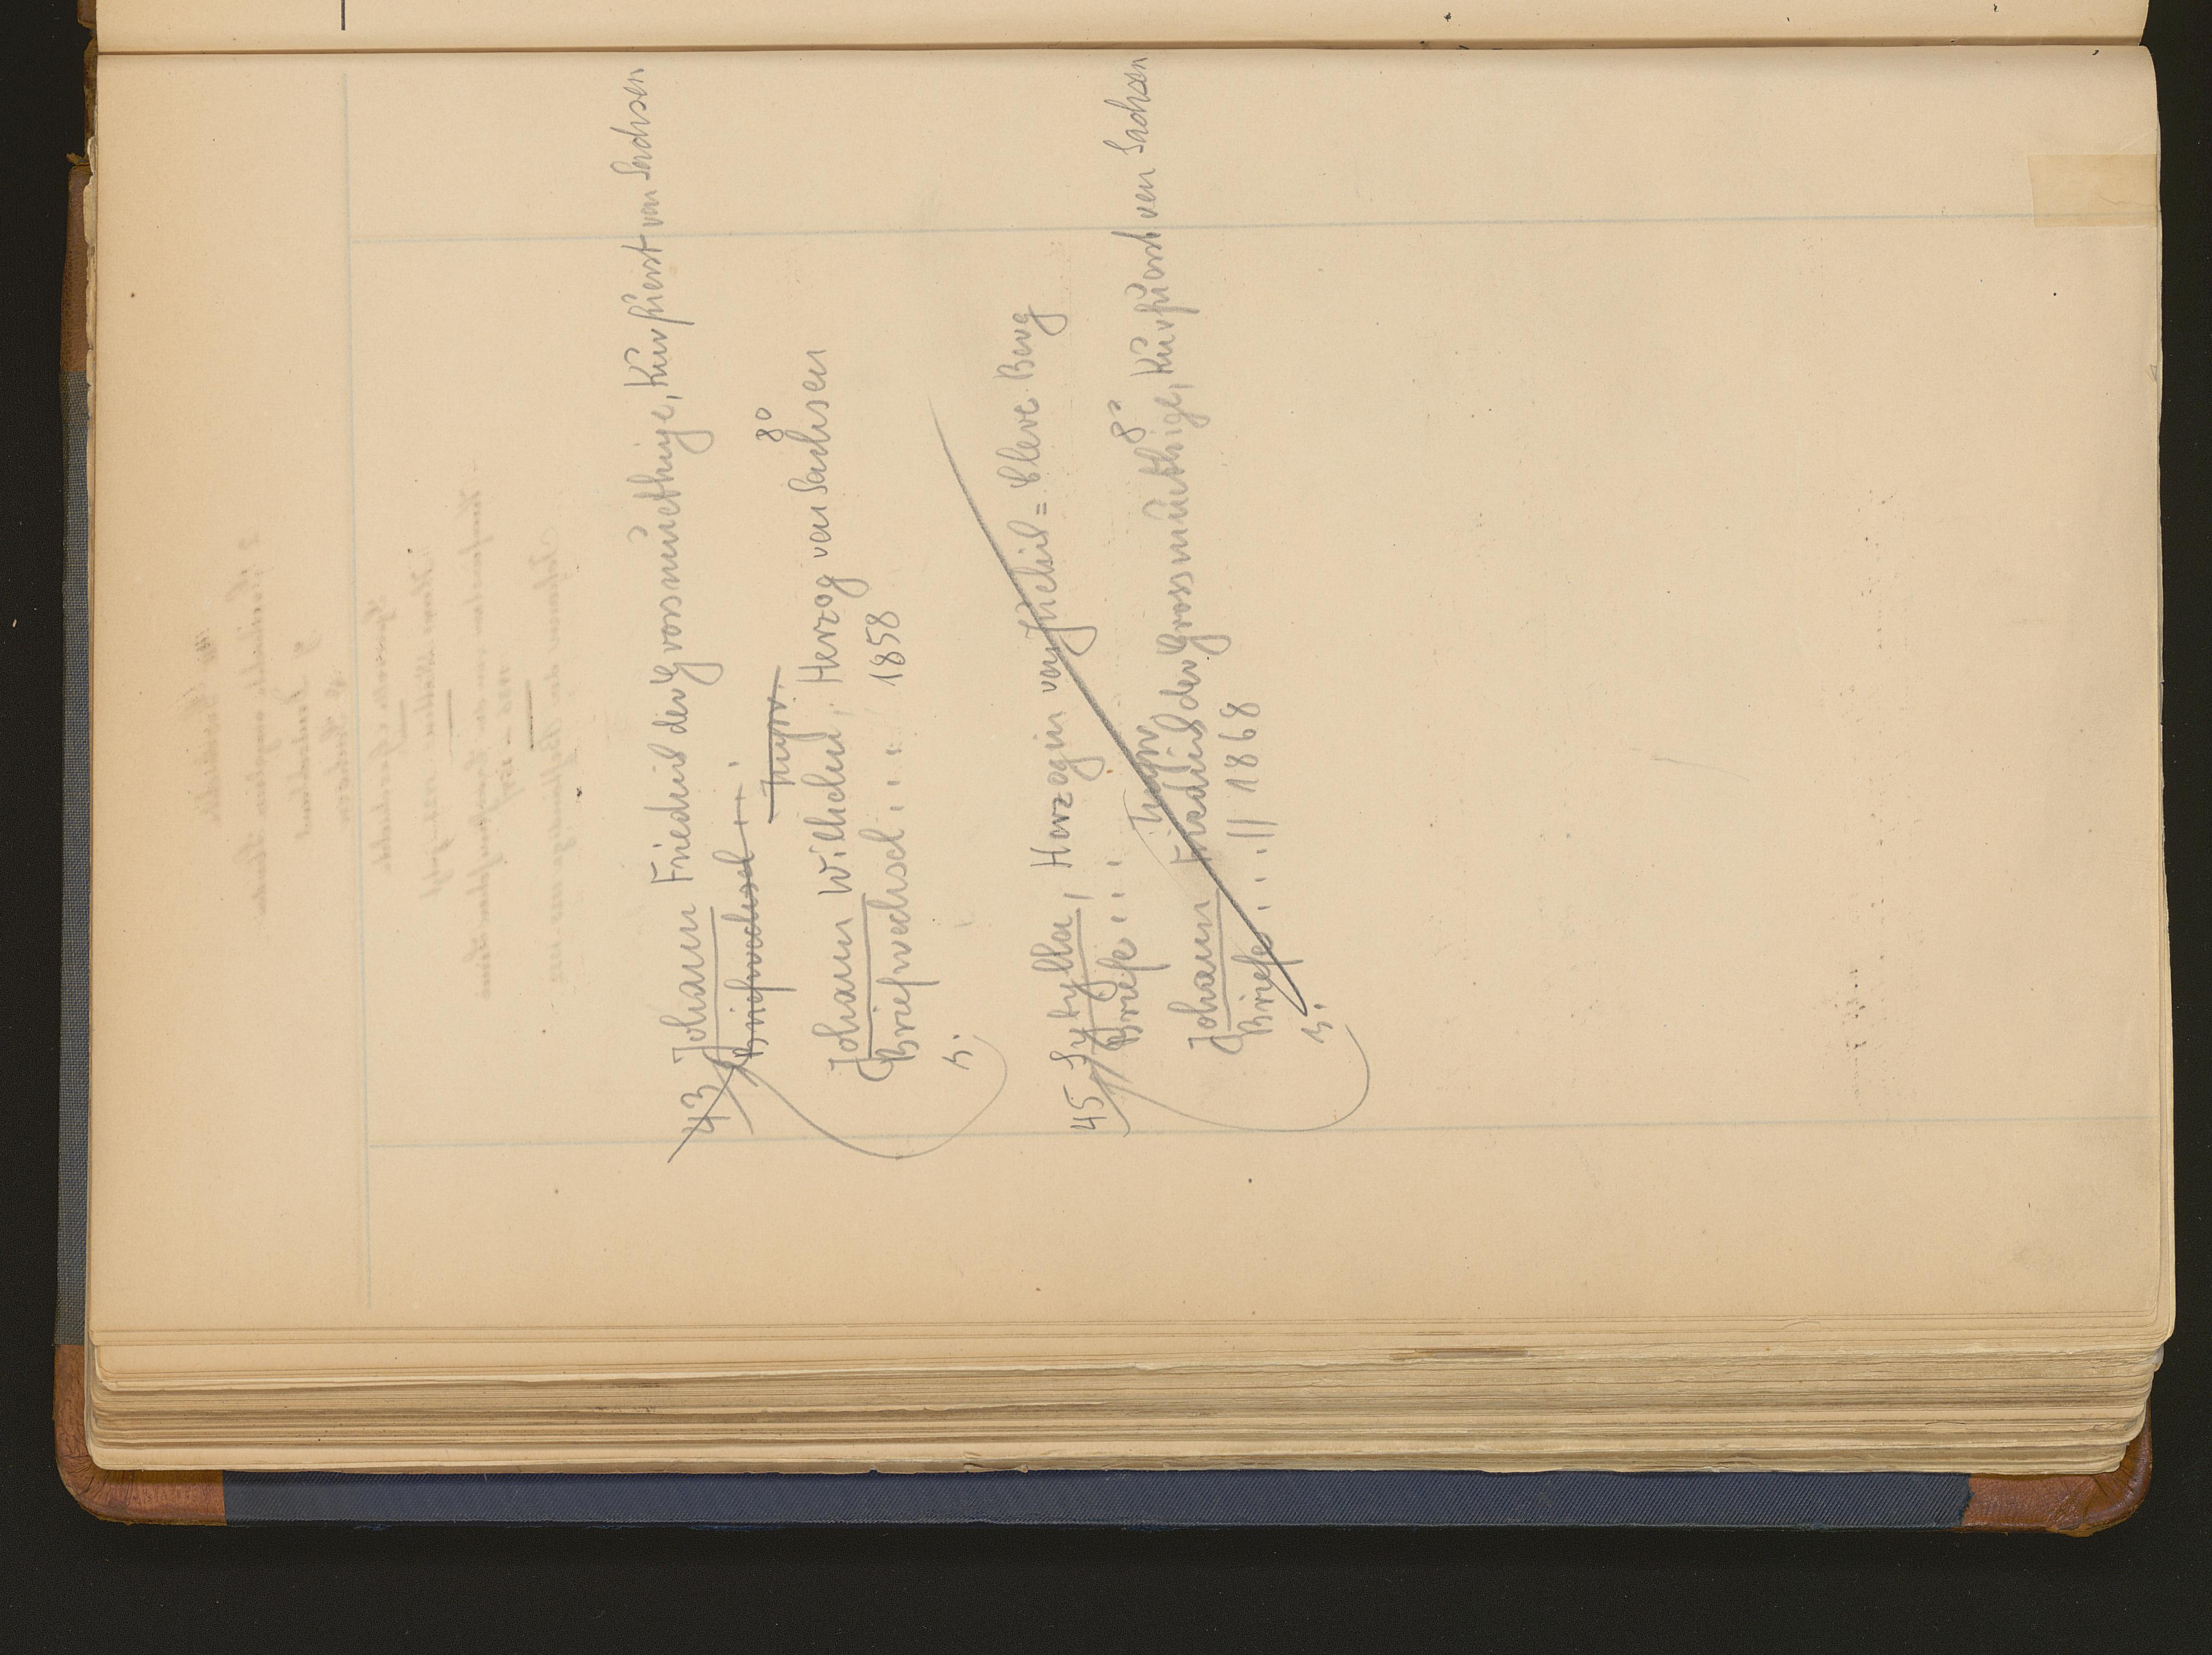 43 Johann Friedrich der Grossmuethige, Kurfuerst von Sachsen
Briefwechsel . . .
8°
Johann Wilhelm, Herzog von Sachsen
Briefwechsel . . . . 1858
45 Sybylla, Herzogin von Juelich = Cleve Berg
Briefe . . .
8°
Johann Friedrich der Grossmuethige, Kurfuerst von Sachsen
Briefe . . . // 1868